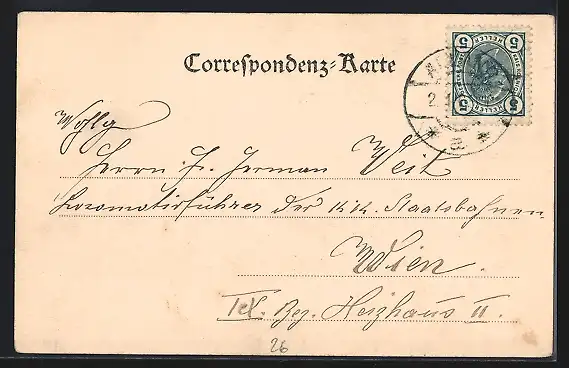 Correspondenz-Karte
5 HELLER 5
5 HELLER 5
2.
Wohlg
Herrn Fr. Herman Veit
Locomotivführer der K.K. Staatsbahnen
Wien.
Bez. Heizhaus II.
26